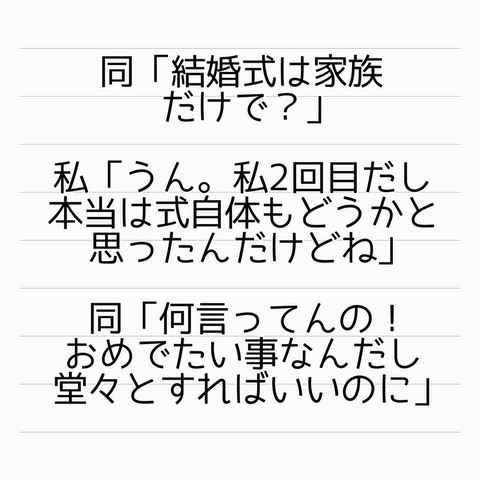 同「結婚式は家族
だけで？」
私「うん。私2回目だし
本当は式自体もどうかと
思ったんだけどね」
同「何言ってんの！
おめでたい事なんだし
堂々とすればいいのに」